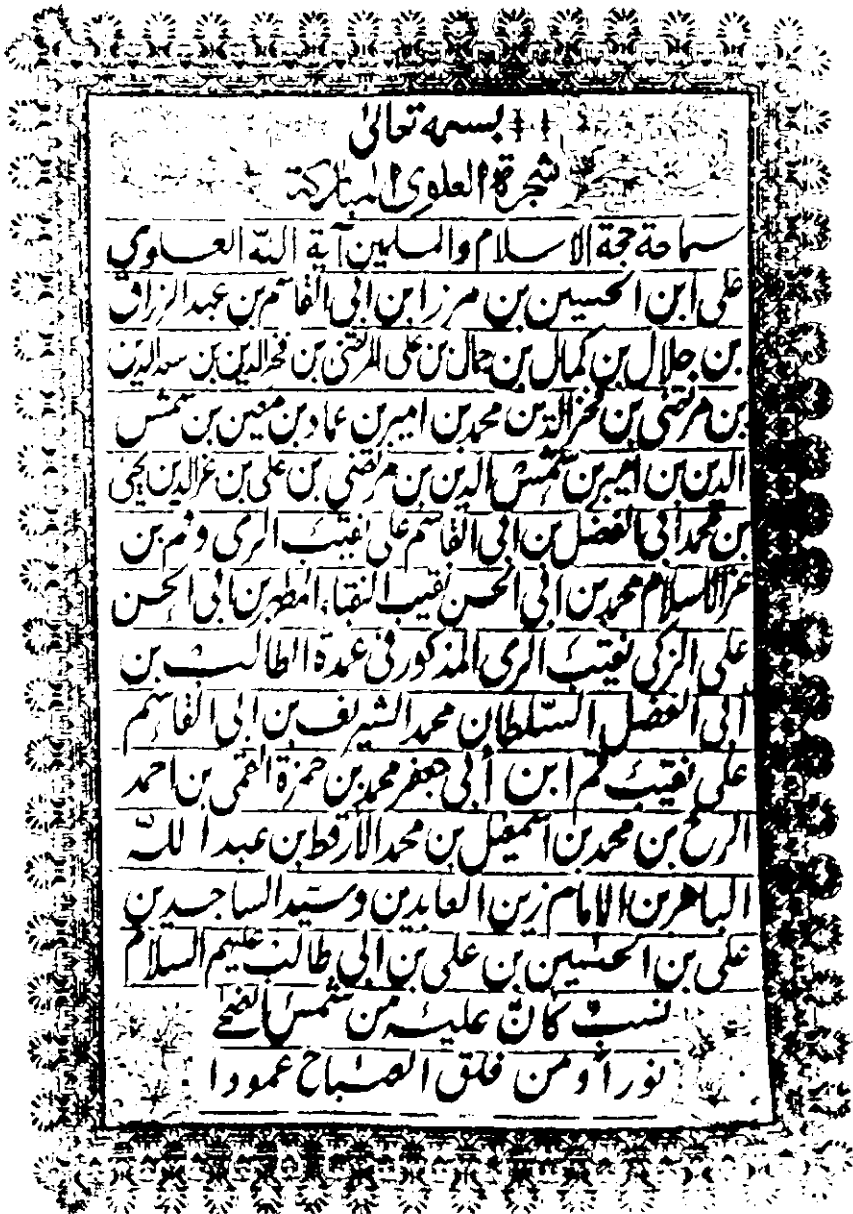 بسمه تعالیٰ
شجرة العلوی المبارکة
سماحة حجة الاسلام والمسلمین آیة الله العلوی
علی ابن الحسین بن مرزا بن ابی القاسم بن عبد الرزاق
بن جلال بن کمال بن جمال بن علی المرتضی بن فخرالدین بن سعدالدین
بن مرتضی بن فخرالدین محمد بن امیر بن عماد بن معین بن شمس
الدین بن امیر بن شمس الدین بن مرتضی بن علی بن عزالدین یحیی
بن محمد ابی الفضل بن ابی القاسم علی نقیب الری وقم بن
عزالاسلام محمد بن ابی الحسن نقیب النقباء المطهر بن ابی الحسن
علی الزکی نقیب الری المذکور فی عمدة الطالب بن
أبی الفضل السلطان محمد الشریف بن ابی القاسم
علی نقیب قم ابن أبی جعفر محمد بن حمزة القمی بن احمد
الرخ بن محمد بن اسمعیل بن محمد الأرقط بن عبد الله
الباهر بن الامام زین العابدین وسید الساجدین
علی بن الحسین بن علی بن ابی طالب علیهم السلام
نسب کان علیه من شمس الضحی
نوراً ومن فلق الصباح عمودا